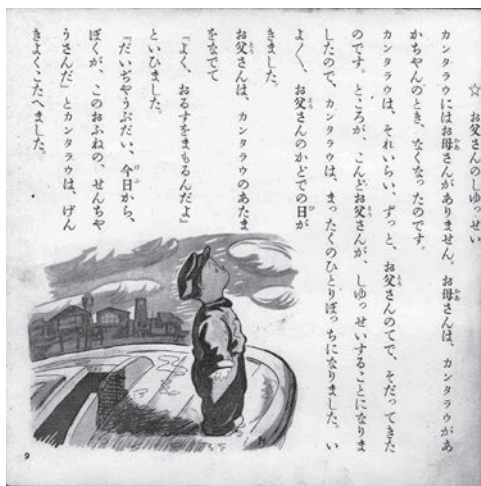 ☆ お父さんのしゆつせい
カンタラウにはお母さんがありません。お母さんは、カンタラウがあ
かちやんのとき、なくなつたのです。
カンタラウは、それいらい、ずつと、お父さんのてで、そだつてきた
のです。ところが、こんどお父さんが、しゆつせいすることになりま
したので、カンタラウは、まつたくのひとりぼつちになりました。い
よ〳〵、お父さんのかどでの日が
きました。
お父さんは、カンタラウのあたま
をなでて
「よく、おるすをまもるんだよ」
といひました。
「だいぢやうぶだい、今日から、
ぼくが、このおふねの、せんちや
うさんだ」とカンタラウは、げん
きよくこたへました。
9